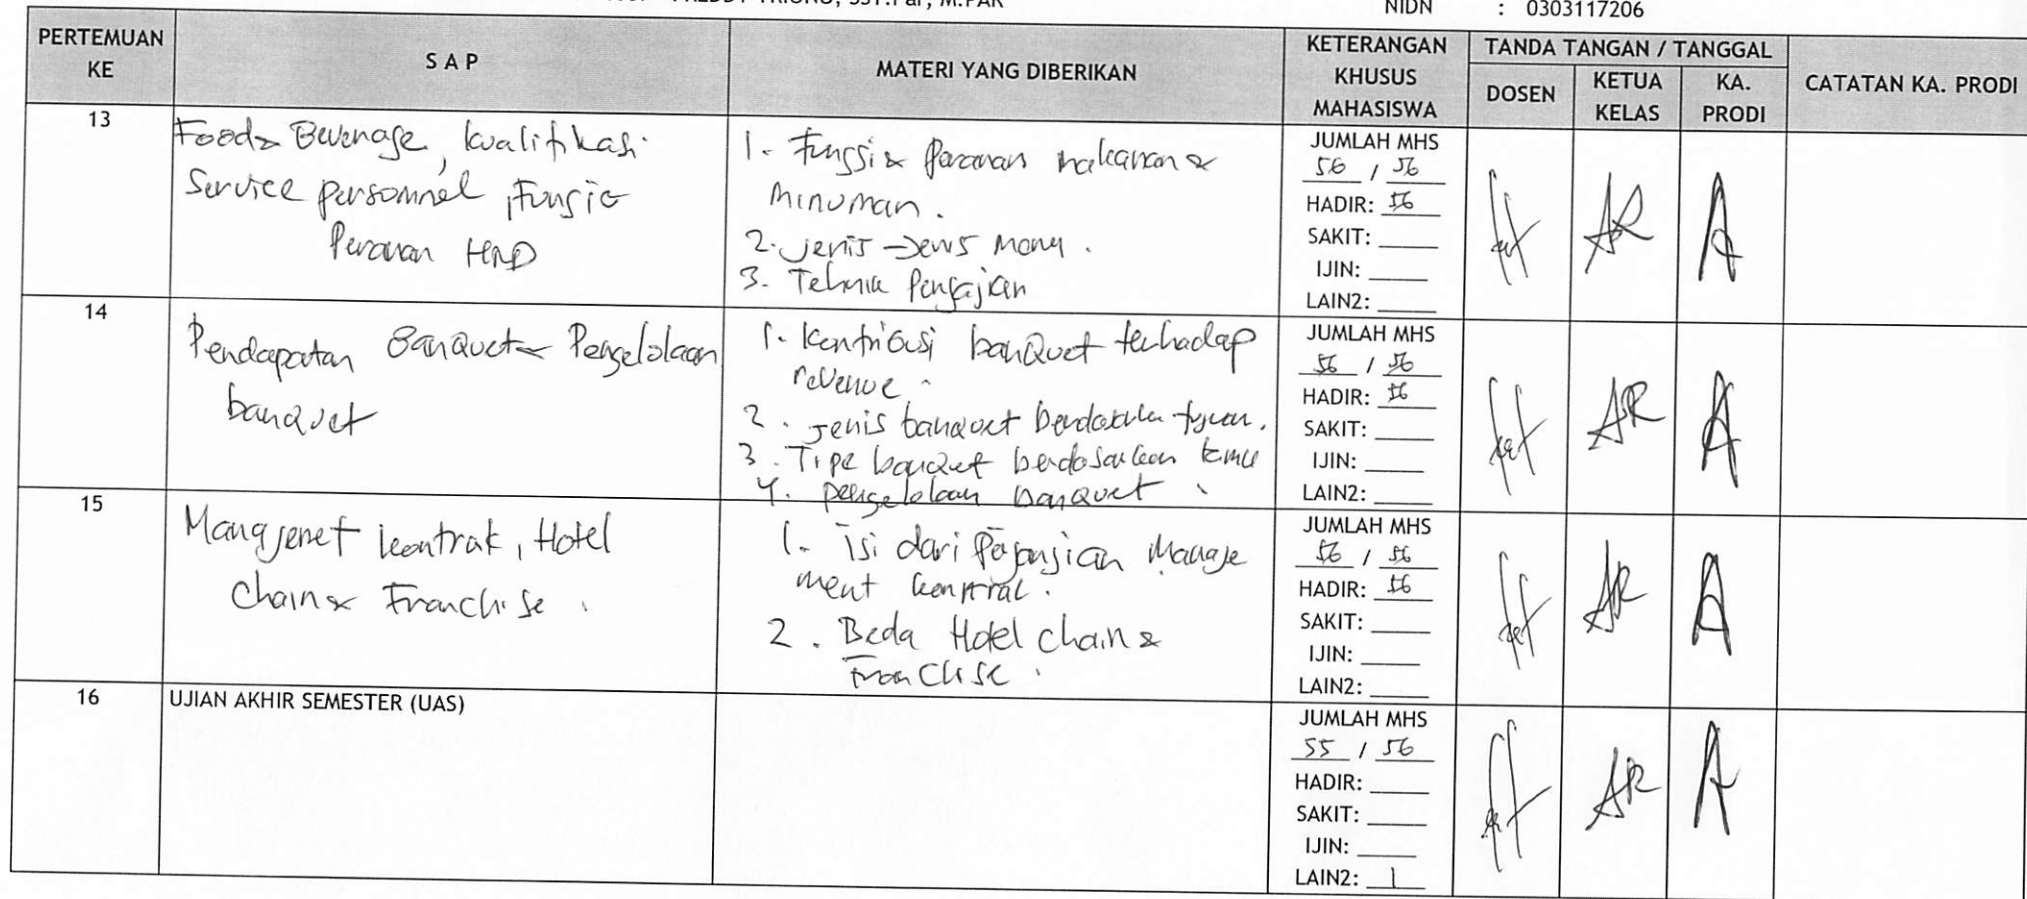 FREDDY TRIONO, SST.Par, M.PAR
NIDN : 0303117206
PERTEMUAN KE
S A P
MATERI YANG DIBERIKAN
KETERANGAN KHUSUS MAHASISWA
TANDA TANGAN / TANGGAL
DOSEN
KETUA KELAS
KA. PRODI
CATATAN KA. PRODI
13
Food & Beverage, kualifikasi
Service personnel, Fungsi &
Peranan
1. Fungsi & peranan makanan &
minuman.
2. jenis-jenis menu.
3. Teknik Penyajian
JUMLAH MHS
56 / 56
HADIR: 56
SAKIT:
IJIN:
LAIN2:
14
Pendapatan Banquet & Pengelolaan
banquet
1. Kontribusi banquet terhadap
revenue.
2. jenis banquet
3. Tipe banquet berdasarkan
4. pengelolaan banquet.
JUMLAH MHS
56 / 56
HADIR: 56
SAKIT:
IJIN:
LAIN2:
15
kontrak, Hotel
Chain & Franchise.
1. isi dari Manage
ment
2. Beda Hotel chain &
Franchise.
JUMLAH MHS
56 / 56
HADIR: 56
SAKIT:
IJIN:
LAIN2:
16
UJIAN AKHIR SEMESTER (UAS)
JUMLAH MHS
55 / 56
HADIR:
SAKIT:
IJIN:
LAIN2: 1